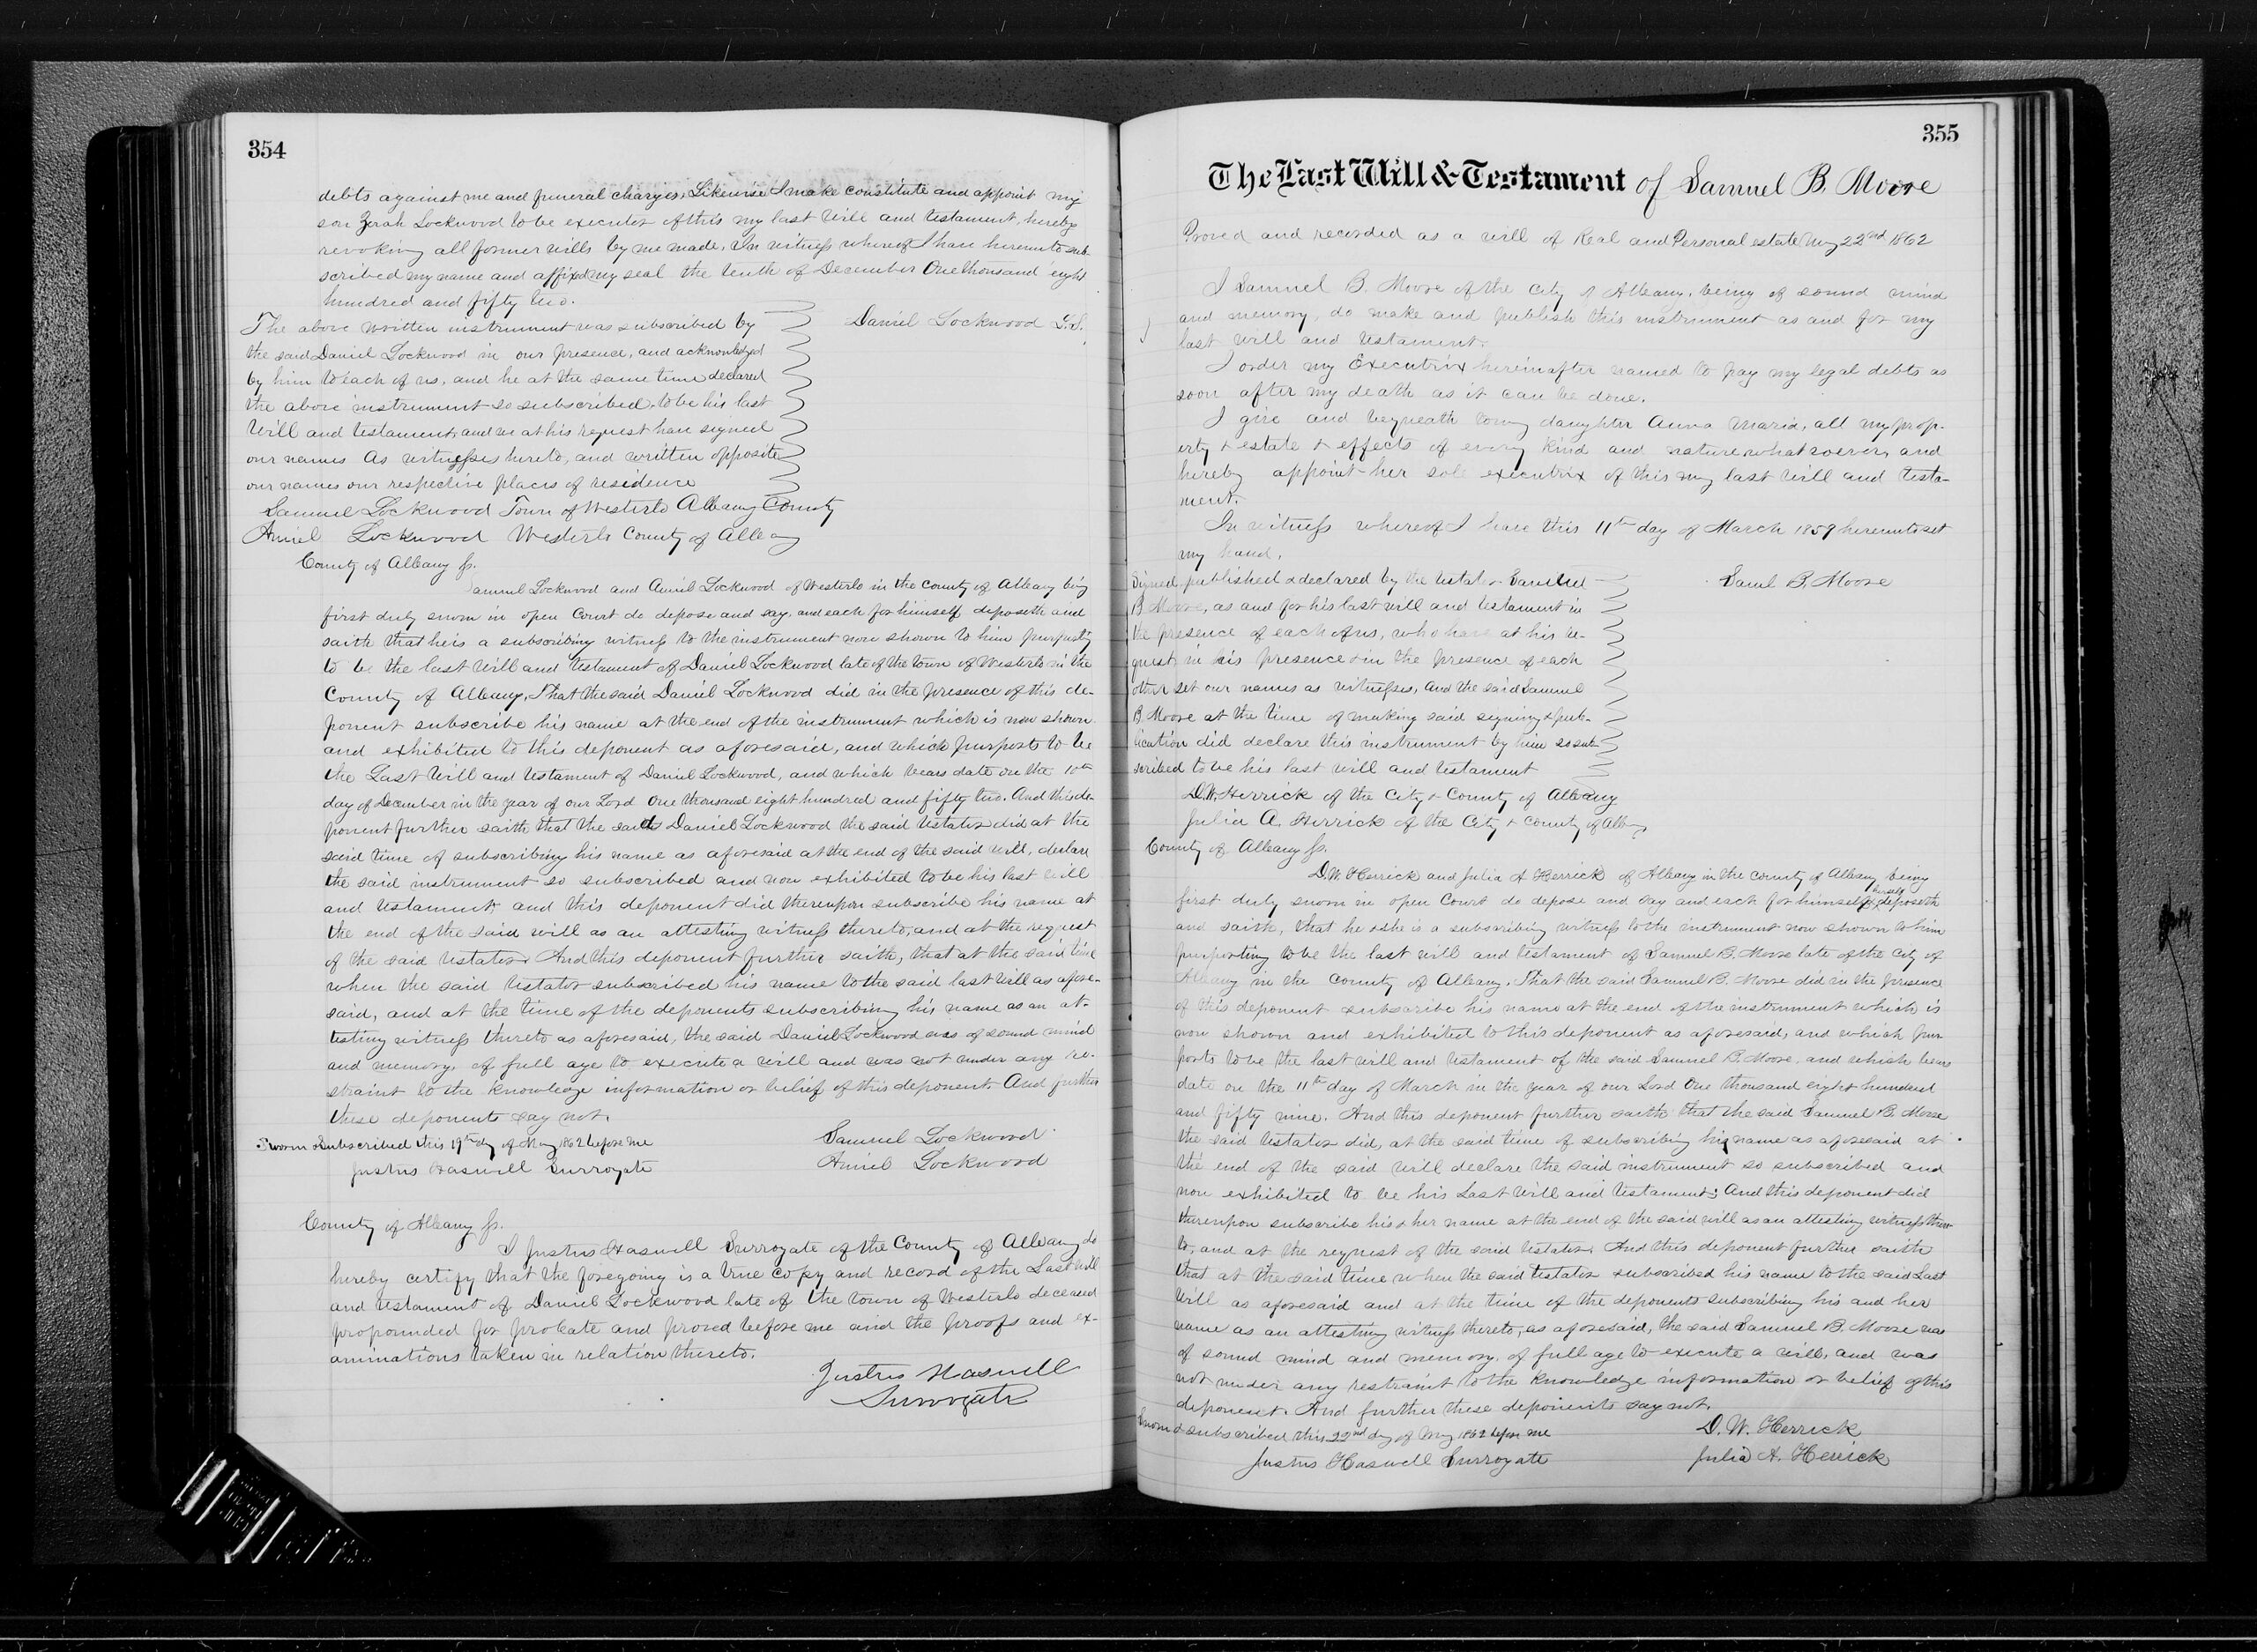 354
debts against me and funeral charges, Likewise I make constitute and appoint my
son Zerah Lockwood to be executor of this my last Will and testament, hereby
revoking all former wills by me made, In witness whereof I have hereunto sub-
scribed my name and affixed my seal the tenth of December One thousand eight
hundred and fifty two.
Daniel Lockwood L.S.
The above written instrument was subscribed by
the said Daniel Lockwood in our presence, and acknowledged
by him to each of us, and he at the same time declared
the above instrument so subscribed, to be his last
Will and testament, and we at his request have signed
our names as witnesses hereto, and written opposite
our names our respective places of residence
Samuel Lockwood Town of Westerlo Albany County
Lockwood Westerlo County of Albany
County of Albany ss.
Samuel Lockwood and Lockwood of Westerlo in the County of Albany being
first duly sworn in open Court do depose and say, and each for himself deposeth and
saith that he is a subscribing witness to the instrument now shown to him purporting
to be the last Will and testament of Daniel Lockwood late of the town of Westerlo in the
County of Albany, That the said Daniel Lockwood did in the presence of this de-
ponent subscribe his name at the end of the instrument which is now shown
and exhibited to this deponent as aforesaid, and which purports to be
the Last Will and testament of Daniel Lockwood, and which bears date on the 10th
day of December in the year of our Lord One thousand eight hundred and fifty two. And this de-
ponent further saith that the said Daniel Lockwood the said testator did at the
said time of subscribing his name as aforesaid at the end of the said will, declare
the said instrument so subscribed and now exhibited to be his last will
and testament; and this deponent did thereupon subscribe his name at
the end of the said will as an attesting witness thereto, and at the request
of the said testator. And this deponent further saith, that at the said time
when the said testator subscribed his name to the said last will as afore-
said, and at the time of the deponents subscribing his name as an at-
testing witness thereto as aforesaid, the said Daniel Lockwood was of sound mind
and memory, of full age to execute a will and was not under any re-
straint to the knowledge information or belief of this deponent. And further
these deponents say not.
Sworn & Subscribed this 19th day of May 1862 before me
Justus Haswell Surrogate
Samuel Lockwood
Lockwood
County of Albany ss.
I Justus Haswell Surrogate of the County of Albany do
hereby certify that the foregoing is a true copy and record of the Last will
and testament of Daniel Lockwood late of the town of Westerlo deceased
propounded for probate and proved before me and the proofs and ex-
aminations taken in relation thereto.
Justus Haswell
Surrogate
355
The Last Will & Testament of Samuel B. Moore
Proved and recorded as a will of Real and Personal estate May 22nd 1862
I Samuel B. Moore of the City of Albany, being of sound mind
and memory, do make and publish this instrument as and for my
last will and testament.
I order my Executrix hereinafter named to pay my legal debts as
soon after my death as it can be done.
I give and bequeath to my daughter Anna Maria, all my prop-
erty & estate & effects of every kind and nature whatsoever, and
hereby appoint her sole executrix of this my last will and testa-
ment.
In witness whereof I have this 11th day of March 1859 hereunto set
my hand.
Saml B. Moore
Signed, published & declared by the testator Samuel
B. Moore, as and for his last will and testament in
the presence of each of us, who have at his re-
quest, in his presence & in the presence of each
other set our names as witnesses, And the said Samuel
B. Moore at the time of making said signing & pub-
lication did declare this instrument by him so sub-
scribed to be his last will and testament
D.W. Herrick of the City & County of Albany
Julia A. Herrick of the City & County of Albany
County of Albany ss.
D.W. Herrick and Julia A Herrick of Albany in the County of Albany being
first duly sworn in open Court do depose and say and each for himself & herself deposeth
and saith, that he & she is a subscribing witness to the instrument now shown to him
purporting to be the last will and testament of Samuel B. Moore late of the City of
Albany in the County of Albany. That the said Samuel B. Moore did in the presence
of this deponent subscribe his name at the end of the instrument which is
now shown and exhibited to this deponent as aforesaid, and which pur-
ports to be the last will and testament of the said Samuel B. Moore, and which bears
date on the 11th day of March in the year of our Lord One thousand eight hundred
and fifty nine. And this deponent further saith that the said Samuel B. Moore
the said testator did, at the said time of subscribing his name as aforesaid at
the end of the said will declare the said instrument so subscribed and
now exhibited to be his Last Will and testament; And this deponent did
thereupon subscribe his & her name at the end of the said will as an attesting witness there-
to, and at the request of the said testator. And this deponent further saith
that at the said time when the said testator subscribed his name to the said Last
Will as aforesaid and at the time of the deponents subscribing his and her
name as an attesting witness thereto, as aforesaid, the said Samuel B. Moore was
of sound mind and memory, of full age to execute a will, and was
not under any restraint to the knowledge information or belief of this
deponent. And further these deponents say not.
Sworn & subscribed this 22nd day of May 1862 before me
Justus Haswell Surrogate
D. W. Herrick
Julia A. Herrick